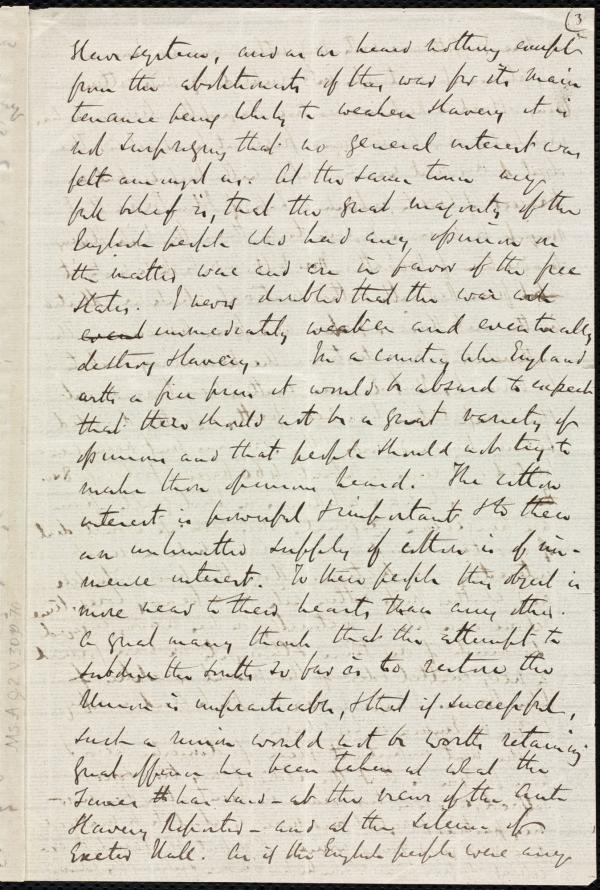 (3
Slave system, and as we heard nothing except
from the abolitionists of this war for its main
tenance being likely to weaken Slavery it is
not surprising that no general interest was
felt amongst us. At the same time my
full belief is, that the great majority of the
English people who had any opinion on
the matter were and are in favor of the free
States. I never doubted that the war
immediately weaken and eventually
destroy Slavery. In a country like England
with a free press it would be absurd to expect
that there should not be a great variety of
opinions and that people should not try to
make those opinions heard. The cotton
interest is powerful & important & to them
an unlimited supply of cotton is of im-
mense interest. To these people this object is
more near to their hearts than any other.
A great many think that the attempt to
subdue the South so far as to restore the
Union is impracticable, & that if successful,
such a union would not be worth retaining
Great offence has been taken at what the
Times has said - at the views of the Anti
Slavery Reporter - and at the silence of
Exeter Hall. As if the English people were any
Ms A 9.2 v.30